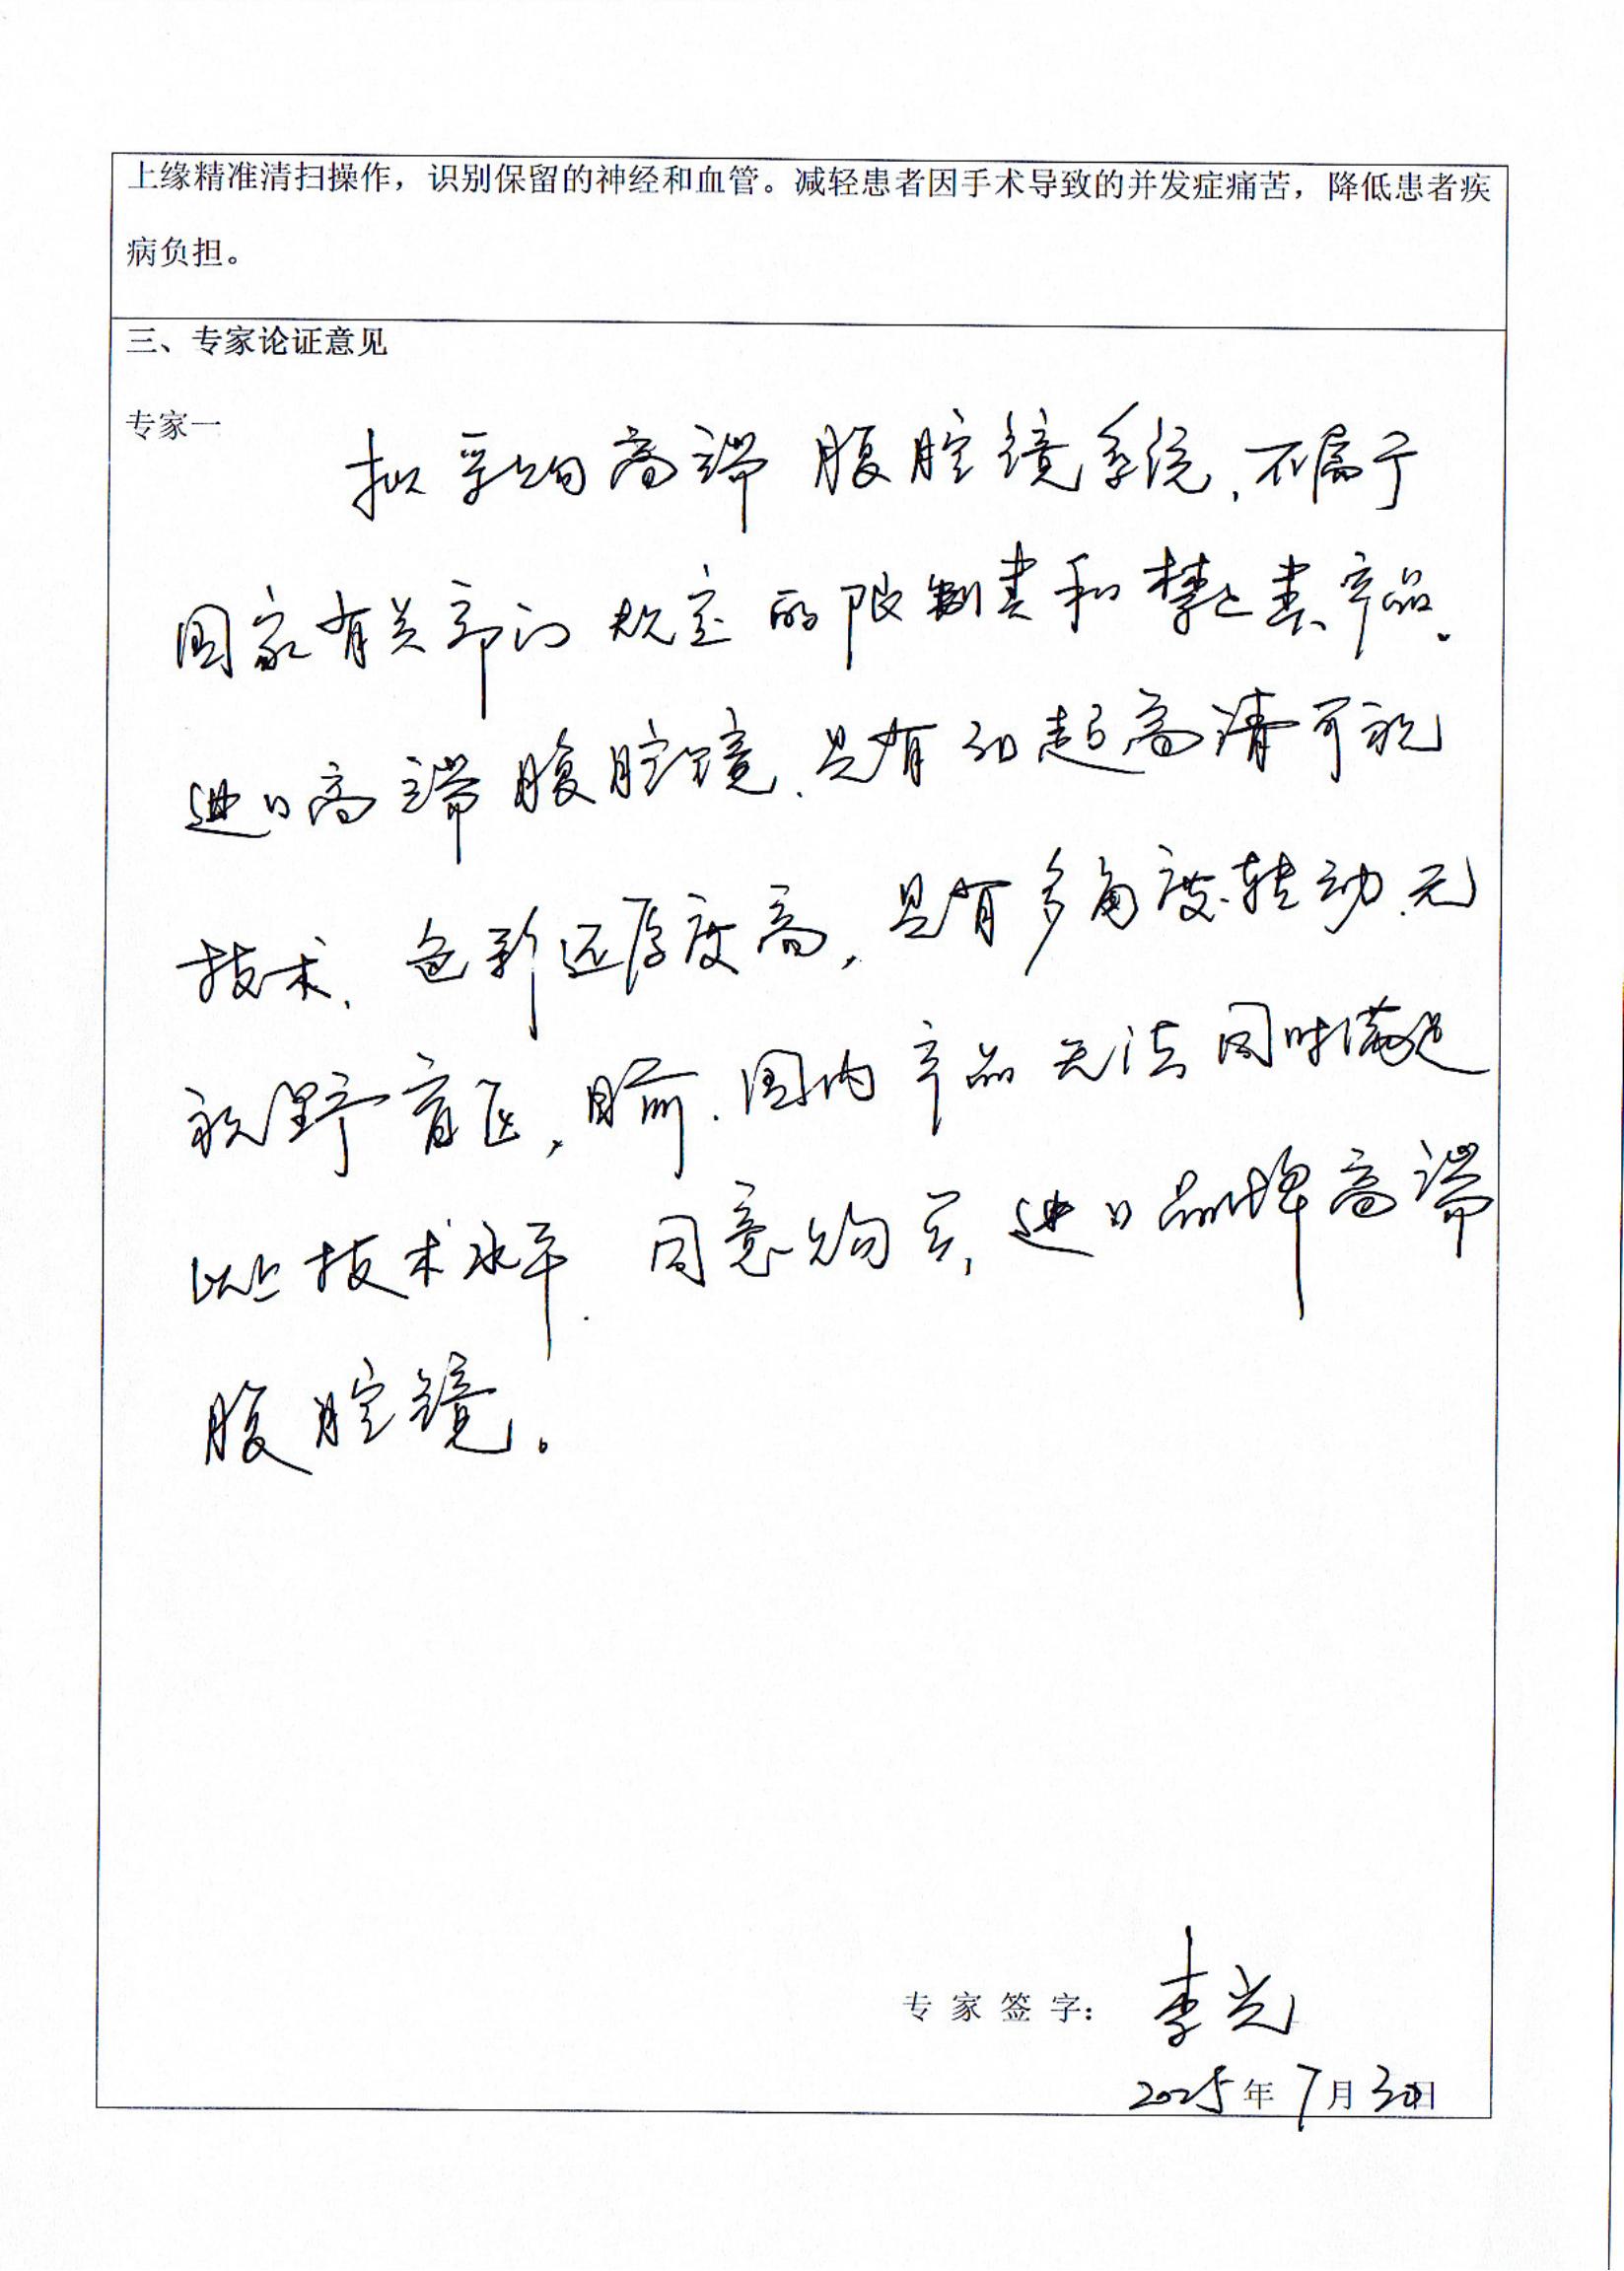 上缘精准清扫操作，识别保留的神经和血管。减轻患者因手术导致的并发症痛苦，降低患者疾
病负担。
三、专家论证意见
专家一
拟采购高端腹腔镜系统，不属于
国家有关部门规定的限制类和禁止类产品。
进口高端腹腔镜，具有3D超高清可视
技术，色彩还原度高，具有多角度转动，无
视野盲区，目前，国内产品无法同时满足
以上技术水平．同意购买，进口品牌高端
腹腔镜。
专家签字：李光
2025年7月30日